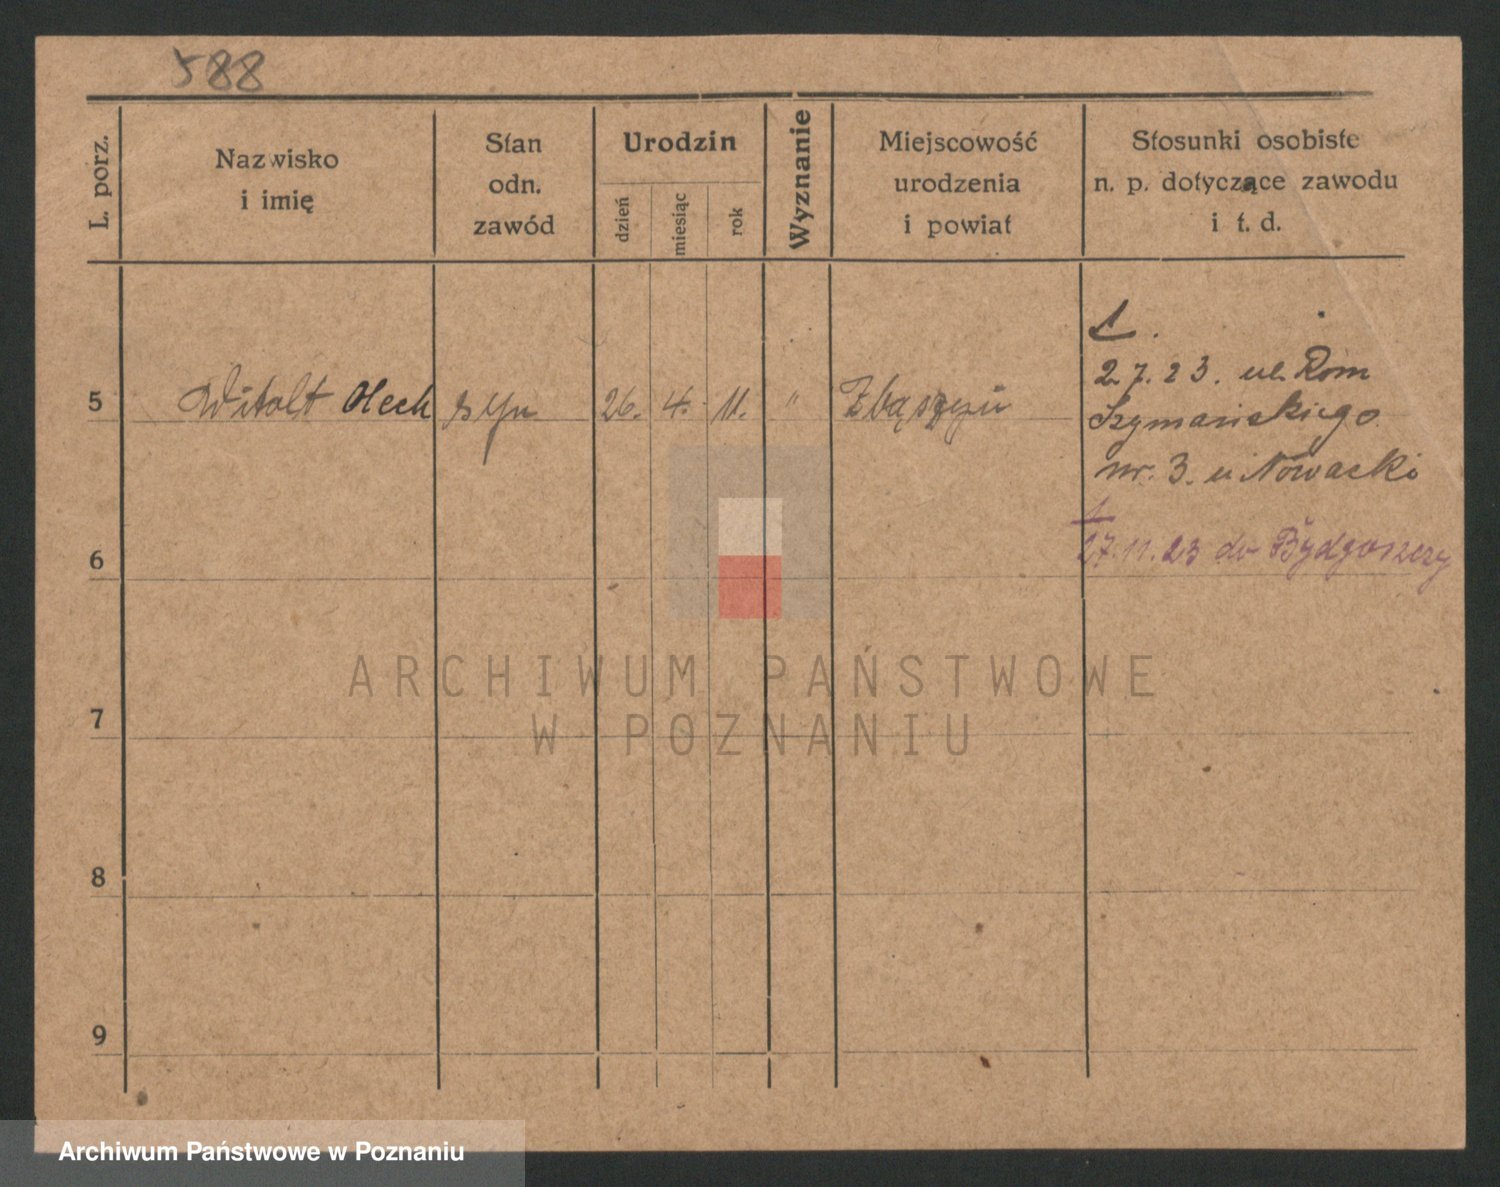 588
L. porz.
Nazwisko
i imię
Stan
odn.
zawód
Urodzin
dzień
miesiąc
rok
Wyznanie
Miejscowość
urodzenia
i powiat
Stosunki osobiste
n. p. dotyczące zawodu
i t. d.
5 Witolt Olech syn 26. 4. 11. " Zbąszyń
1.
2.7.23. ul. Rom
Szymańskiego
nr. 3. u Nowacki
6
27.11.23 do Bydgoszczy
7
8
9
ARCHIWUM PAŃSTWOWE
W POZNANIU
Archiwum Państwowe w Poznaniu